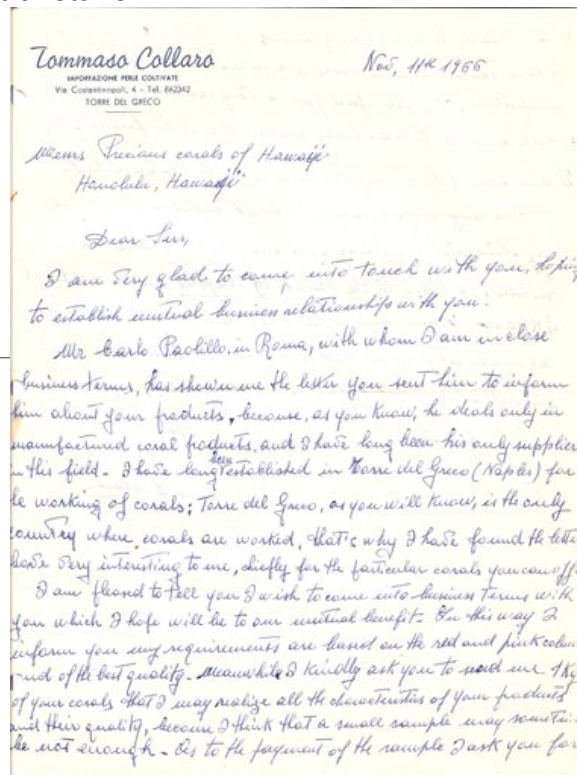 Tommaso Collaro
IMPORTAZIONE PERLE COLTIVATE
Via Costantinopoli, 4 - Tel. 862342
TORRE DEL GRECO
Nov, 11th 1966
Messrs Precious corals of Hawaiji
Honolulu, Hawaiji
Dear Sirs,
I am very glad to come into touch with you, hoping
to establish mutual business relationships with you.
Mr Carlo Paolillo, in Roma, with whom I am in close
business terms, has shown me the letter you sent him to inform
him about your products, because, as you know, he deals only in
manufactured coral products, and I have long been his only supplier
in this field - I have long been established in Torre del Greco (Naples) for
he working of corals; Torre del Greco, as you will know, is the only
country where corals are worked, that's why I have found the lette
have very interesting to me, chiefly for the particular corals you can off
I am pleased to tell you I wish to come into business terms with
you which I hope will be to our mutual benefit - In this way I
inform you my requirements are based on the red and pink colour
nd of the best quality - Meanwhile I kindly ask you to send me 1 Kg
of your corals that I may realize all the characteristics of your products
and their quality, because I think that a small sample may sometim
be not enough - As to the payment of the sample I ask you for